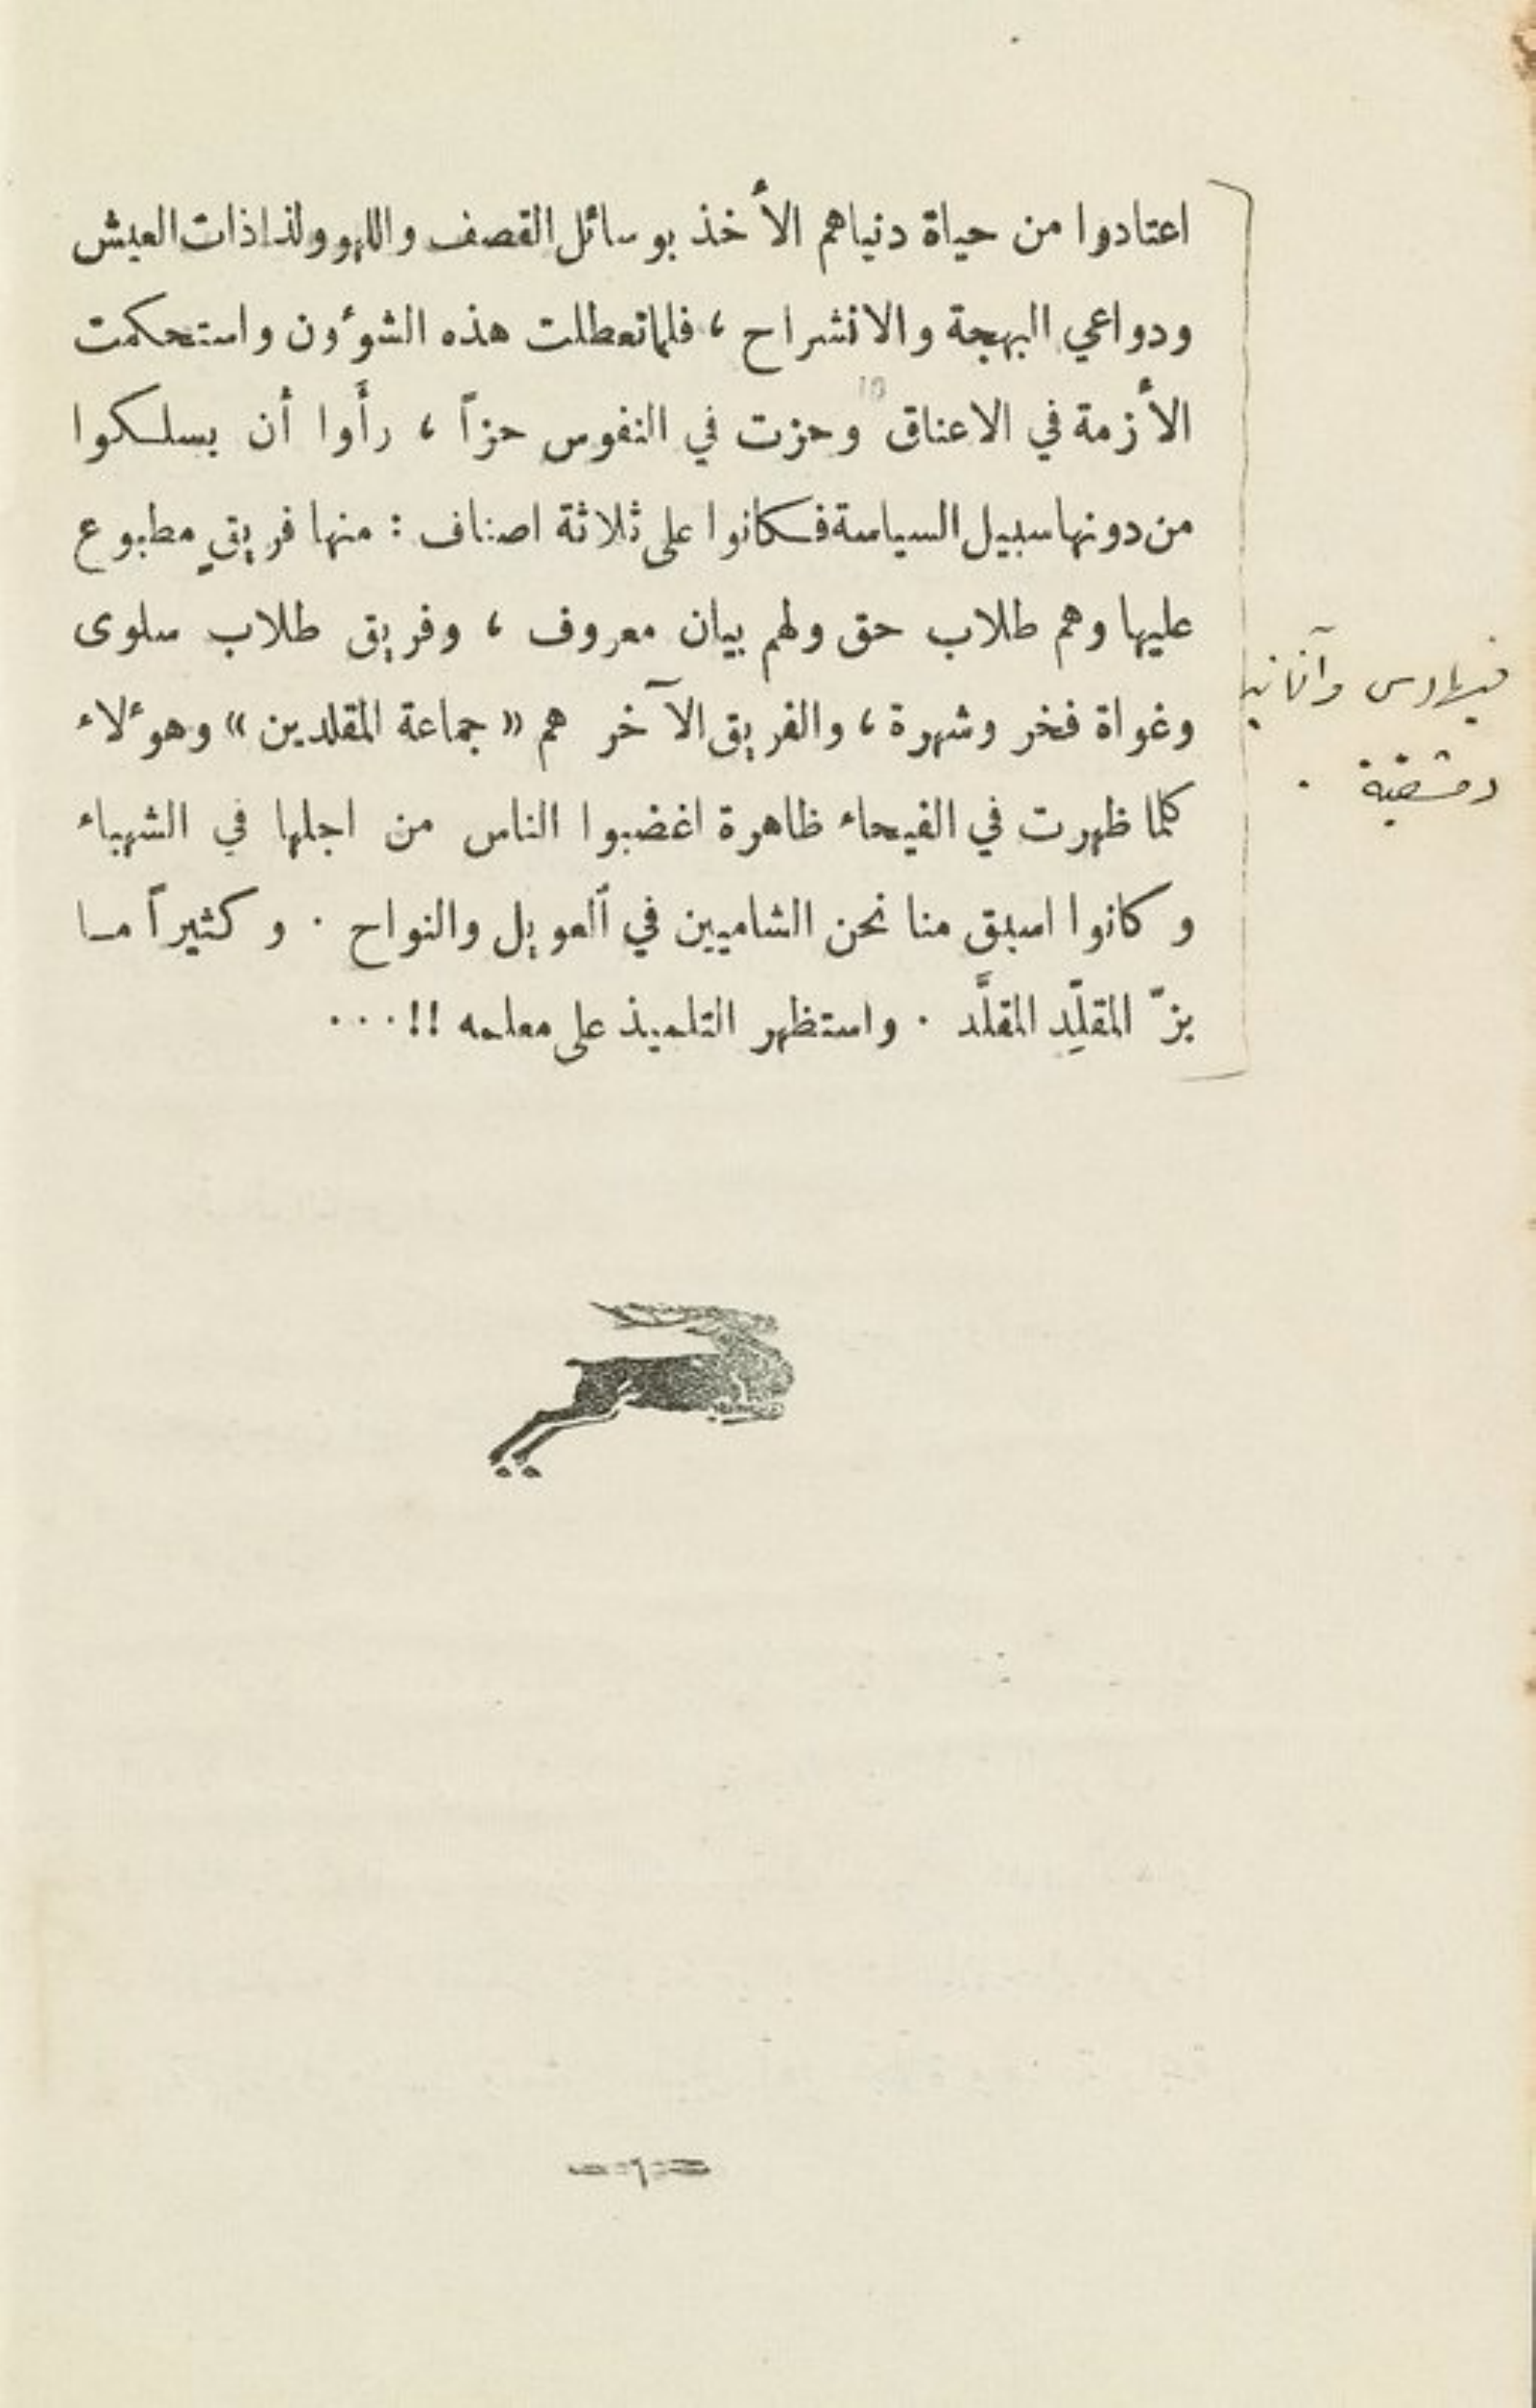 اعتادوا من حياة دنياهم الأخذ بوسائل القصف واللهو ولذاذات العيش
ودواعي البهجة والانشراح ، فلما تعطلت هذه الشوءون واستحكمت
الأزمة في الاعناق وحزت في النفوس حزاً ، رأَوا أن يسلكوا
من دونها سبيل السياسة فكانوا على ثلاثة اصناف : منها فريق مطبوع
عليها وهم طلاب حق ولهم بيان معروف ، وفريق طلاب سلوى
وغواة فخر وشهرة ، والفريق الآخر هم « جماعة المقلدين » وهوءلاء
كلما ظهرت في الفيحاء ظاهرة اغضبوا الناس من اجلها في الشهباء
وكانوا اسبق منا نحن الشاميين في ألعويل والنواح . وكثيراً ما
بزّ المقلِّد المقلَّد . واستظهر التلميذ على معلمه !! ...
وآنانية
دمشقية .
=٦=